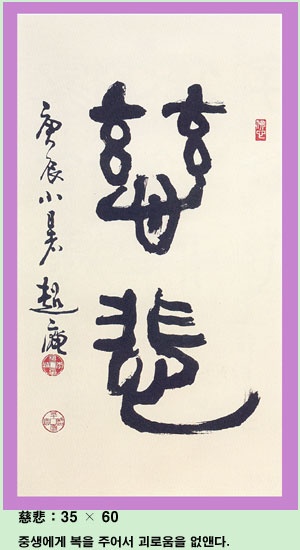 慈悲
庚辰小暑 超庵
慈悲 : 35 × 60
중생에게 복을 주어서 괴로움을 없앤다.